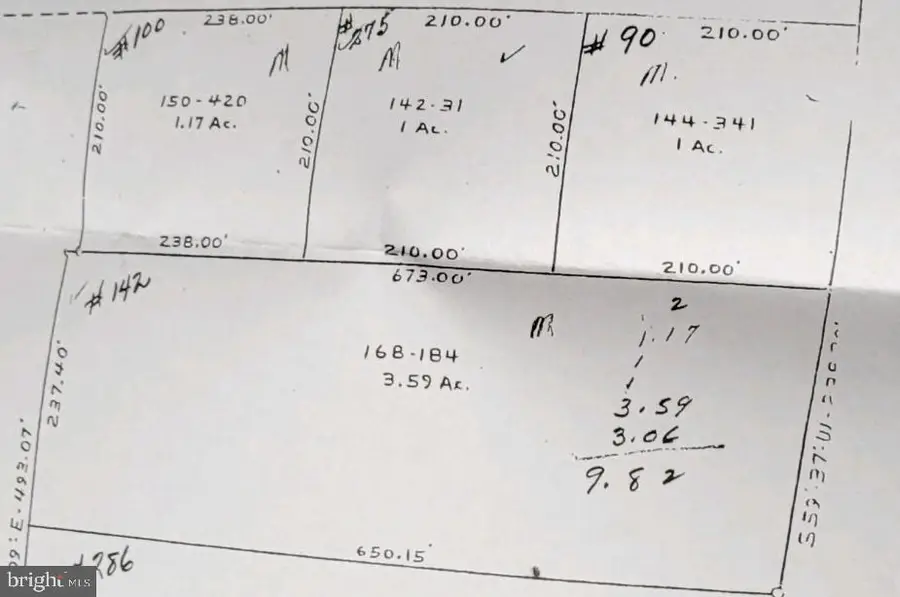 238.00'
210.00'
210.00'
#100
#275
#90
M
M
M.
150-420
1.17 Ac.
142-31
1 Ac.
144-341
1 Ac.
210.00'
210.00'
210.00'
238.00'
210.00'
210.00'
673.00'
#142
M
168-184
3.59 Ac.
2
1.17
1
1
3.59
3.06
9.82
237.40'
E-493.07'
650.15'
286
bright MLS